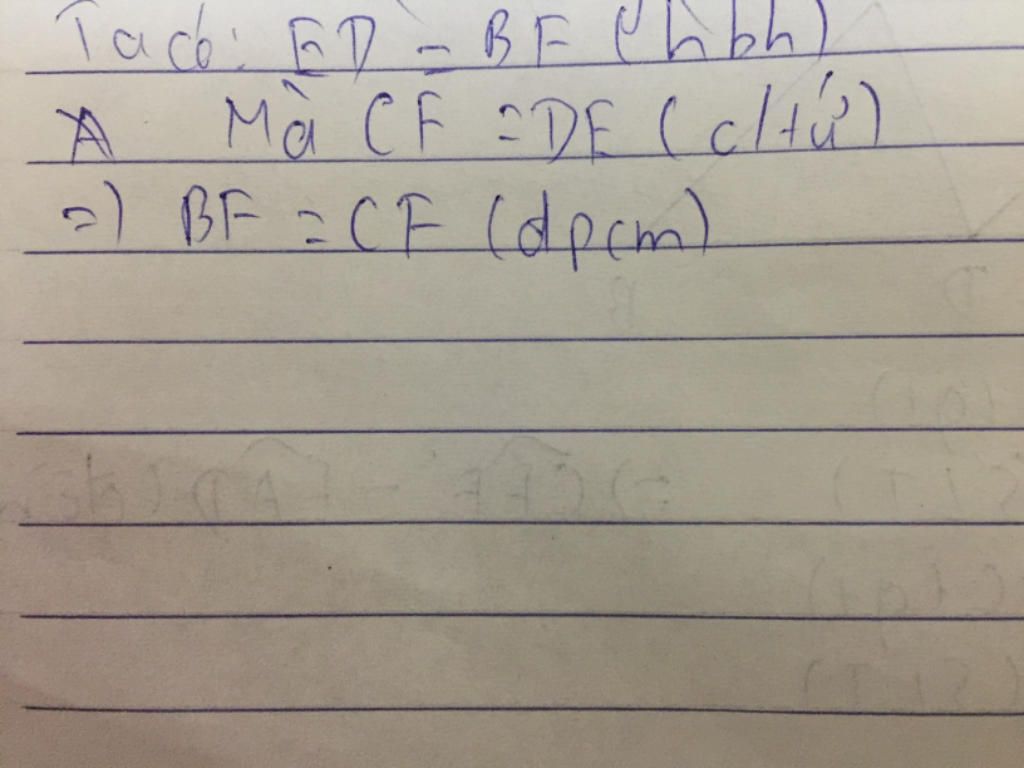 Ta có: ED = BF (hbh)
Mà CF = DE (c/tứ)
=) BF = CF (dpcm)